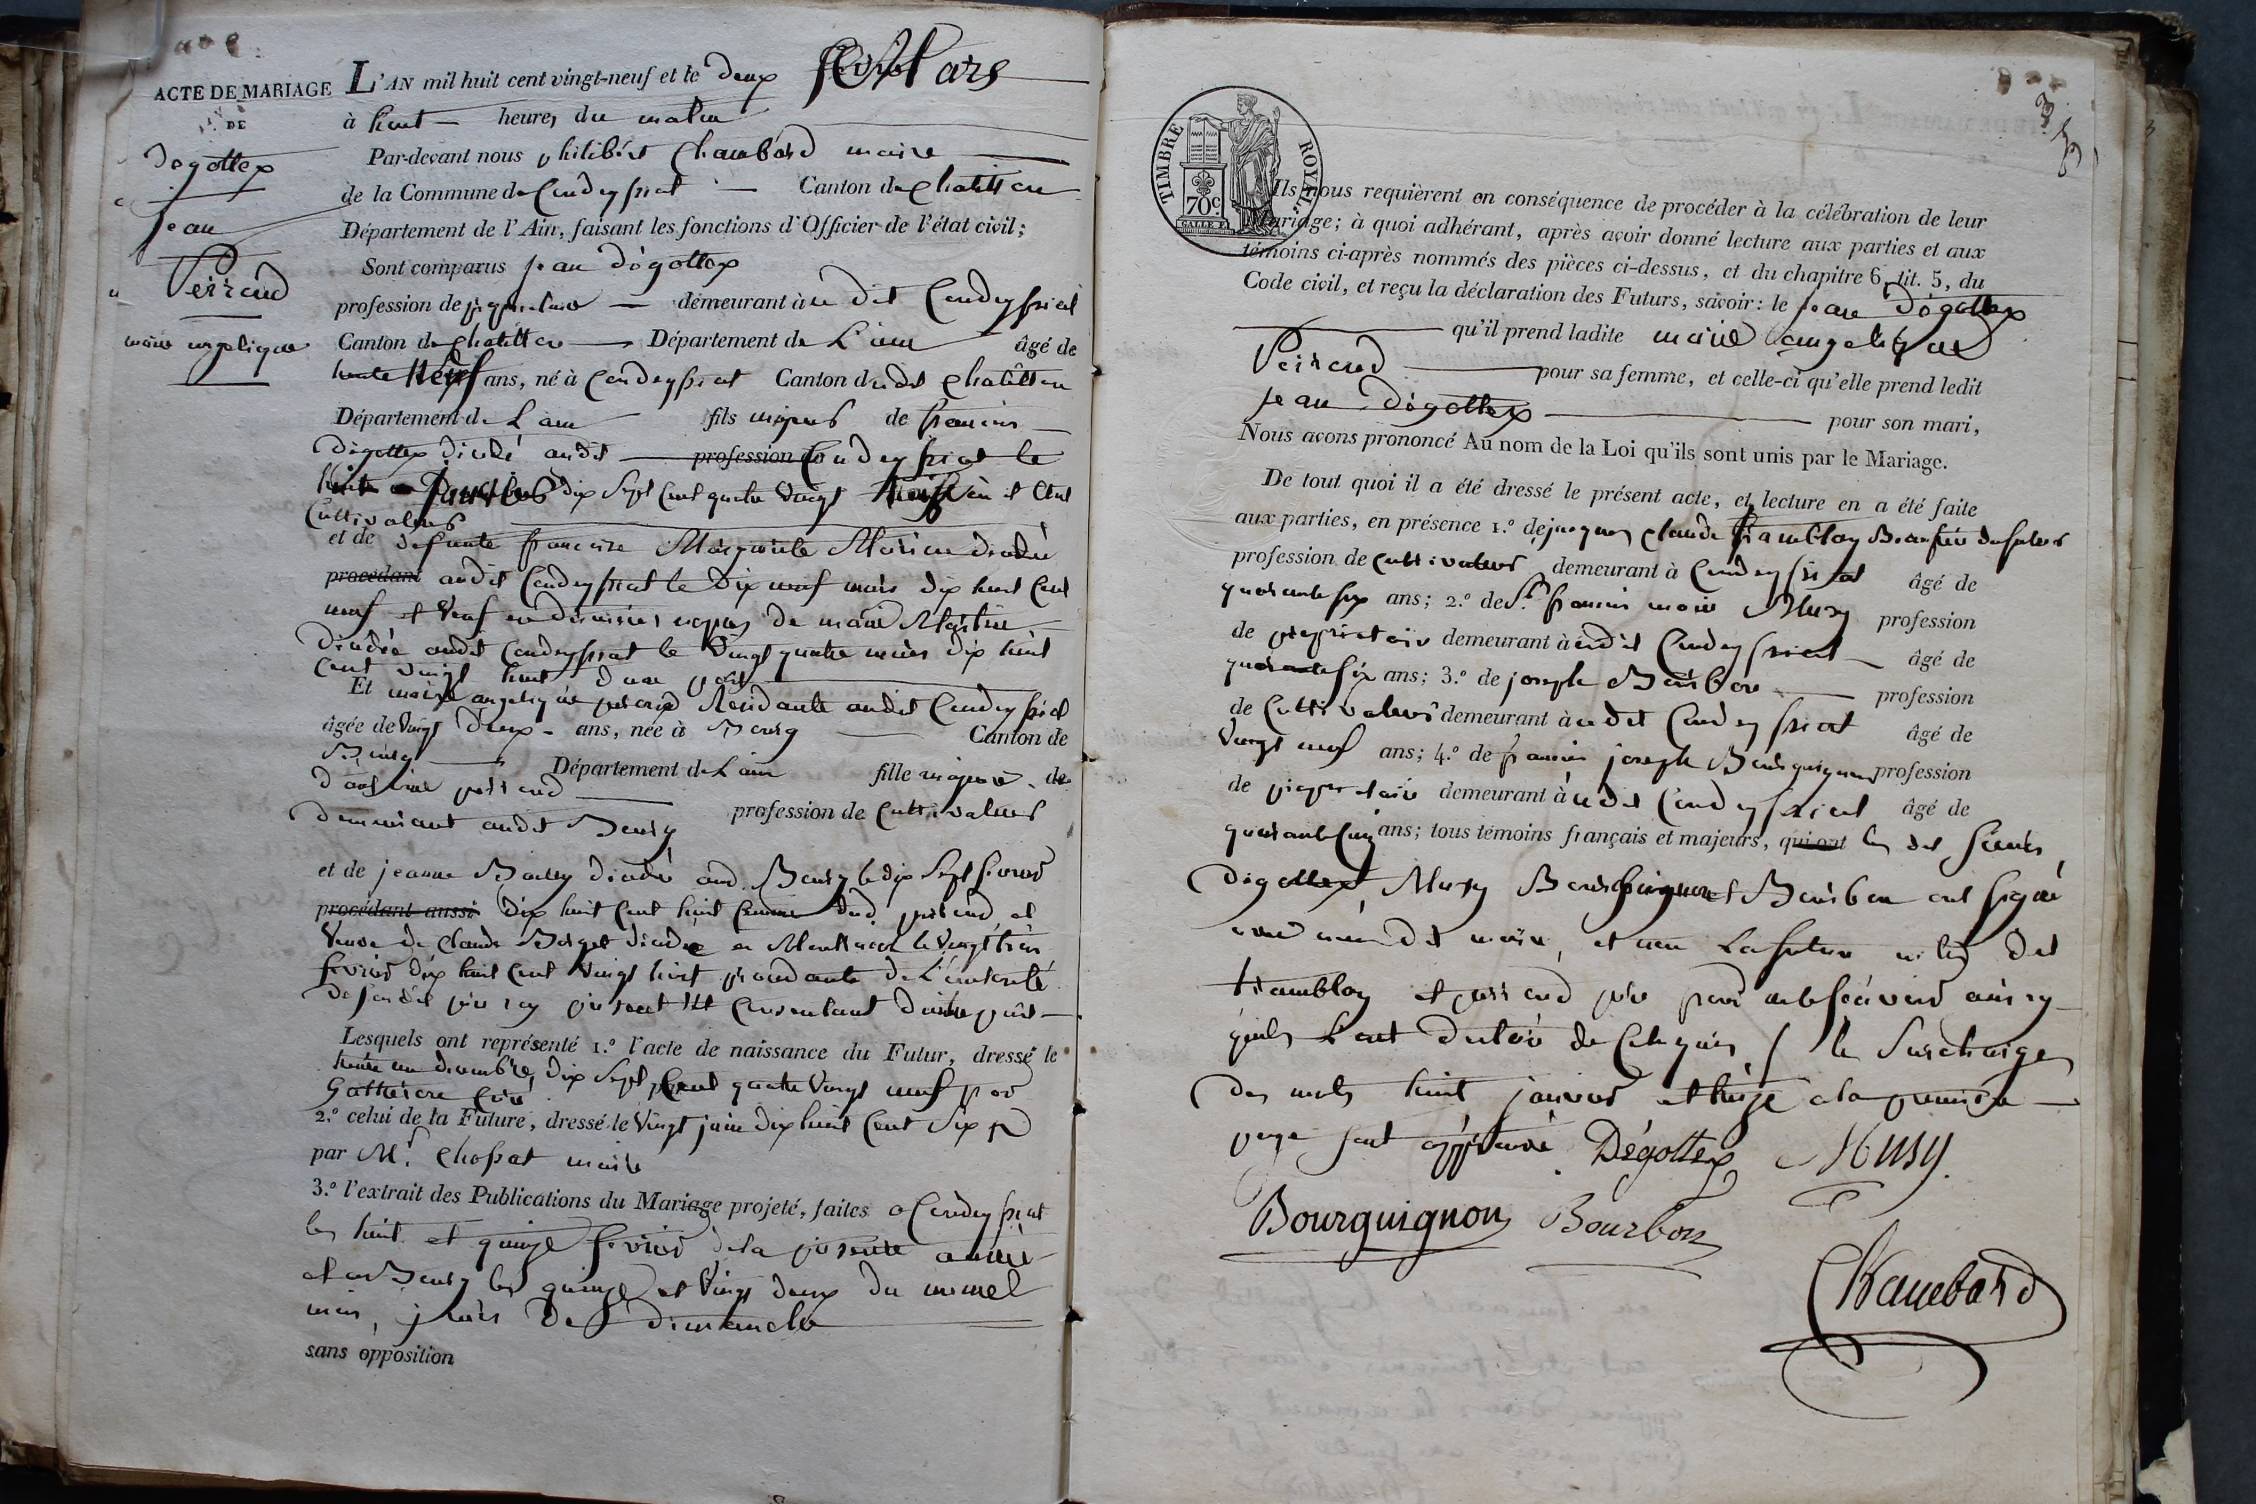 ACTE DE MARIAGE
DE
Dégottex
Jean
Perraud
marie angelique
L'AN mil huit cent vingt-neuf et le deux Mars
à huit heures du matin
Par-devant nous philibert Chambard maire
de la Commune de Condeyssiat Canton de Chatillon
Département de l'Ain, faisant les fonctions d'Officier de l'état civil;
Sont comparus Jean Dégottex
profession de demeurant à udit Condeyssiat
Canton de Chatillon Département de L'ain âgé de
trente Neuf ans, né à Condeyssiat Canton dudit Chatillon
Département de L'ain fils majeur de francois
Dégottex décédé audit profession de Condeyssiat le
dix sept cent quatre vingt et était
Cultivateur
et de defunte francoise Marguerite décédée
procédant audit Condeyssiat le Dix neuf mars dix huit cent
neuf et Veuf en dernières noces de marie Martin
Décédée audit Condeyssiat le Vingt quatre mars dix huit
cent vingt huit d'une part
Et marie angelique perraud Résidante audit Condeyssiat
âgée de vingt Deux ans, née à Bourg Canton de
Bourg Département de L'ain fille majeure de
perraud
demeurant audit Bourg profession de Cultivateur
et de jeanne décédée aud. Bourg le dix Sept fevrier
procédant aussi dix huit cent huit femme dud. perraud et
Veuve de Claude décédé en le Vingt trois
fevrier dix huit cent vingt huit procédante de L'autorité
de son dit père icy présent et consentant d'autre part
Lesquels ont représenté 1.º l'acte de naissance du Futur, dressé le
trente un decembre dix Sept Cent quatre Vingt neuf par
curé
2.º celui de la Future, dressé le Vingt juin dix huit Cent Six
par Mr. Chossat maire
3.º l'extrait des Publications du Mariage projeté, faites a Condeyssiat
les huit et quinze fevrier de la présente année
et a Bourg les quinze et Vingt deux du même
mois, jours de dimanche
sans opposition
TIMBRE ROYAL
70c.
Ils nous requièrent en conséquence de procéder à la célébration de leur
Mariage; à quoi adhérant, après avoir donné lecture aux parties et aux
témoins ci-après nommés des pièces ci-dessus, et du chapitre 6, tit. 5, du
Code civil, et reçu la déclaration des Futurs, savoir: le Jean Dégottex
qu'il prend ladite marie angelique
Perraud pour sa femme, et celle-ci qu'elle prend ledit
Jean Dégottex pour son mari,
Nous avons prononcé Au nom de la Loi qu'ils sont unis par le Mariage.
De tout quoi il a été dressé le présent acte, et lecture en a été faite
aux parties, en présence 1.º de jacques claude tramblay Beaufrère du futur
profession de Cultivateur demeurant à Condeyssiat âgé de
quarante six ans; 2.º de Sr. francois marie Musy profession
de propriétaire demeurant à udit Condeyssiat âgé de
quarante six ans; 3.º de joseph Bourbon profession
de Cultivateur demeurant à udit Condeyssiat âgé de
Vingt neuf ans; 4.º de francois joseph Bourguignon profession
de propriétaire demeurant à udit Condeyssiat âgé de
quarante cinq ans; tous témoins français et majeurs, qui ont les dits Sieurs
Dégottex, Musy Bourguignon et Bourbon ont signé
avec nous dit maire, et non La future ni les dits
tramblay et perraud père pour ne le sçavoir ainsy
qu'ils L'ont déclaré de ce requis, les Surcharges
des mots huit janvier et treize a la première
page sont approuvé. Dégottex Musy.
Bourguignon Bourbon
Chambard